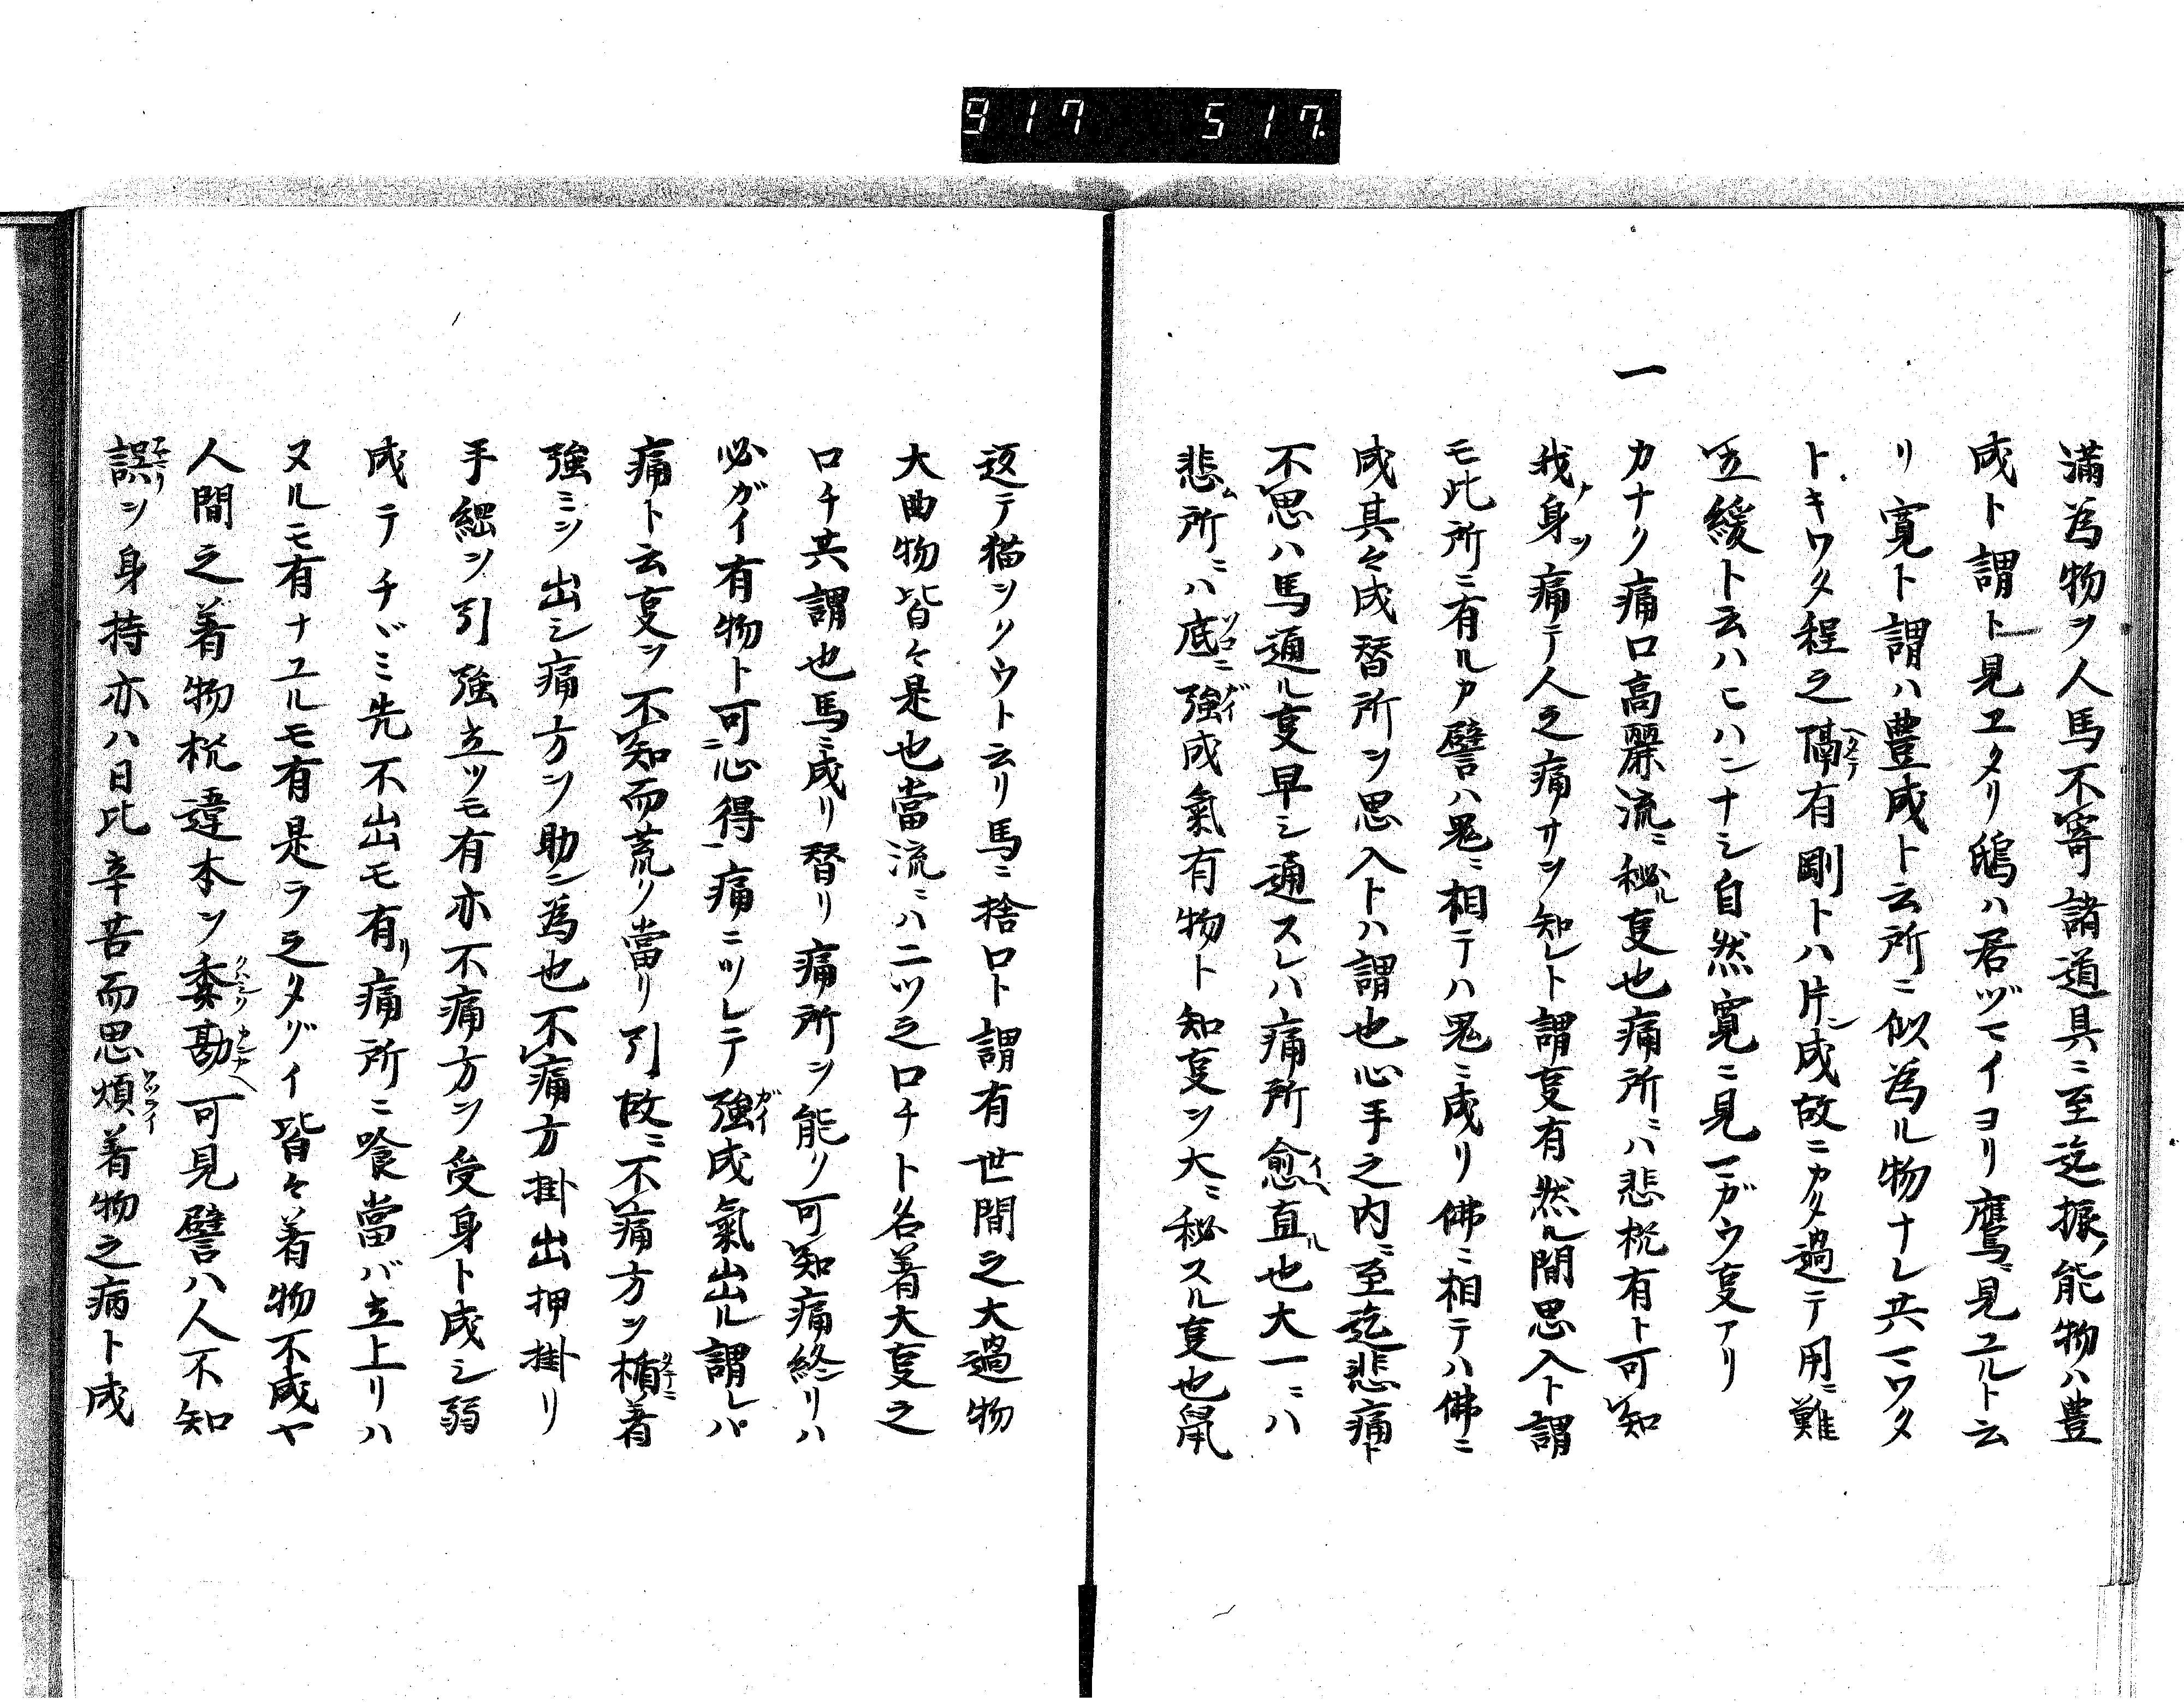 917 517.
満為物ヲ人馬不寄諸道具ニ至迄振ノ能物ハ豊
成ト謂ト見ヱタリ鴟ハ居ヅマイヨリ鷹ニ見ユルト云
リ寛ト謂ハ豊成ト云所ニ似為ル物ナレ共一ワタ
トキワタ程之隔ヘタテ有剛トハ片シ成故ニカタ過テ用ニ難
立緩ト云ハヒハンナシ自然寛ニ見一ガウ叓アリ
一カナクノ痛口高麗流ニ秘ル叓也痛所ニハ悲枕有ト可知
我身ヲツ痛テ人之痛サヲ知レト謂叓有然ル間思入ト謂
モ此所ニ有ルカ譬ハ鬼ニ相テハ鬼ニ成リ佛ニ相テハ佛ニ
成其々成替所ヲ思入トハ謂也心手之内ニ至迄悲痛ト
不思ハ馬通ル叓早シ通スレハ痛所愈イヘ直ル也大一ニハ
悲ム所ニハ底ソコニ強ガイ成氣有物ト知叓ヲ大ニ秘スル叓也鼠
返テ猫ヲソウト云リ馬ニ捨口ト謂有世間之大過物
大曲物皆々是也當流ニハ二ツ之口チト名着大叓之
口チ共謂也馬ニ成リ替リ痛所ヲ能リ可知痛終リハ
必ガイ有物ト可ニ心得一痛ニツレテ強ガイ成氣出ル謂レバ
痛ト云叓ヲ不知而荒ク當リ引故ニ不痛方ヲ楯タテニ着
強ミヲ出シ痛方ヲ助ン為也不痛方掛出押掛リ
手縄ヲ引強立ツモ有亦不痛方ヲ受身ト成シ弱
成テチヾミ先不出モ有リ痛所ニ喰當バ立上リハ
ヌルモ有ナユルモ有是ラ之タグイ皆々着物不成ヤ
人間之着物枕違本ヲ委クハシク勘カンガヘ可見譬ハ人不知
誤アヤマリヲ身持亦ハ日比辛苦而思煩ワツライ着物之病ト成